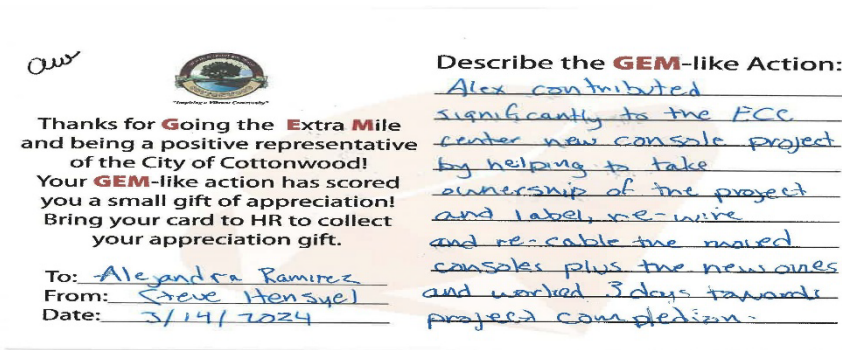 "Inspiring a Vibrant Community"
Thanks for Going the Extra Mile
and being a positive representative
of the City of Cottonwood!
Your GEM-like action has scored
you a small gift of appreciation!
Bring your card to HR to collect
your appreciation gift.
To: Alejandra Ramirez
From: Steve Hensyel
Date: 3/14/2024
Describe the GEM-like Action:
Alex contributed
significantly to the ECC
center new console project
by helping to take
ownership of the project
and label, re-wire
and re-cable the moved
consoles plus the new ones
and worked 3 days towards
project completion.